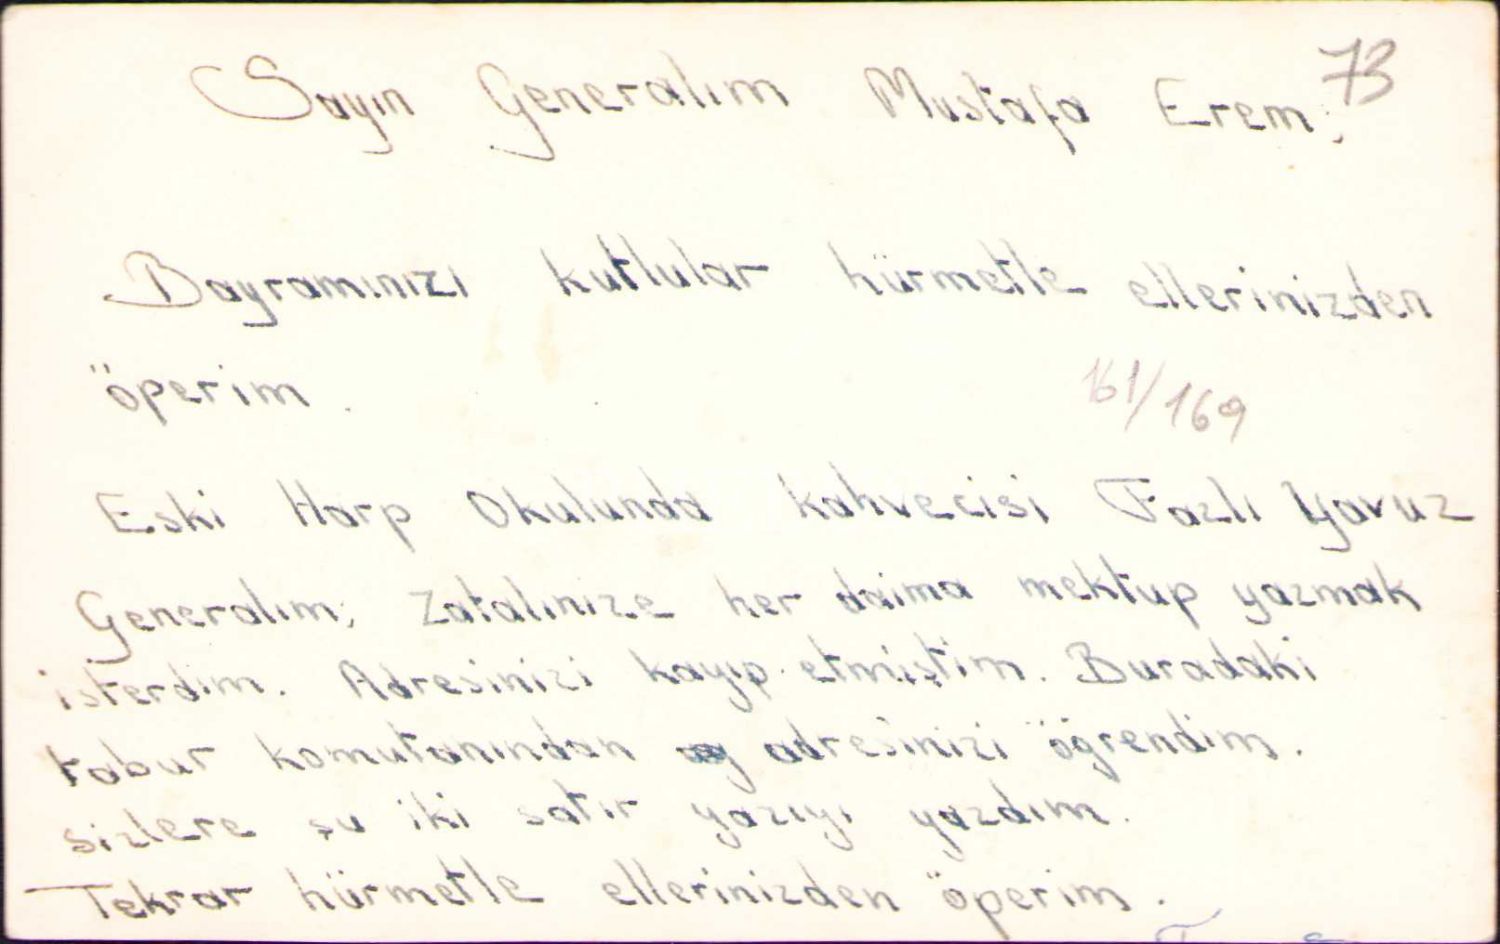 73
Sayın Generalım Mustafa Erem;
Bayramınızı kutlular hürmetle ellerinizden
öperim.
161/169
Eski Harp Okulunda kahvecisi Fazlı Yavuz
Generalım; Zatalinize her daima mektup yazmak
isterdim. Adresinizi kayıp etmiştim. Buradaki
tabur komutanından adresinizi öğrendim.
sizlere şu iki satır yazıyı yazdım.
Tekrar hürmetle ellerinizden öperim.